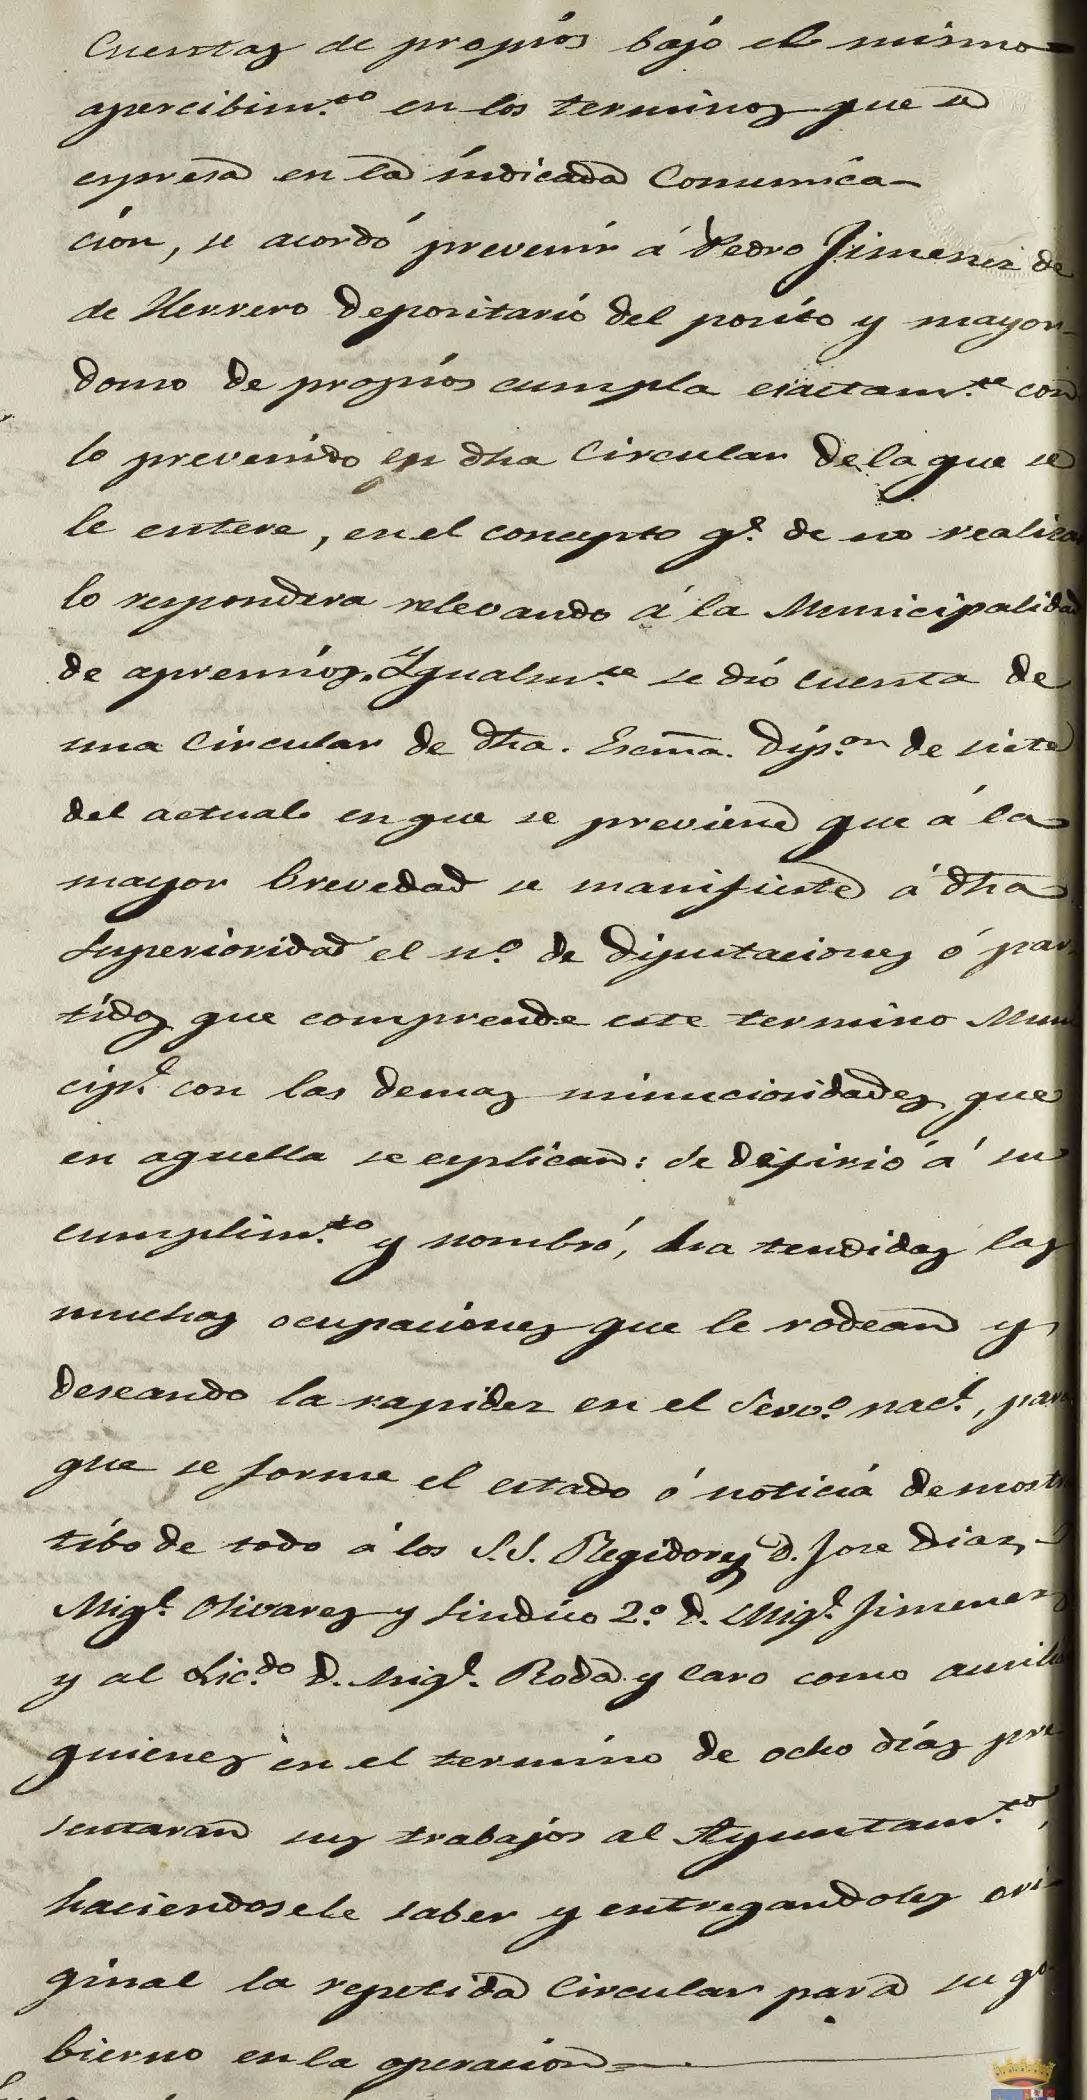 Cuentas de propios bajo el mismo
apercibim.to en los terminos que se
espresa en la indicada Comunica-
cion, se acordó prevenir á Pedro Jimenez de
de Herrero depositario del posito y mayor-
domo de propios cumpla exactam.te con
lo prevenido en dha Circular de la que se
le entere, en el concepto q.e de no realizar
lo respondera relevando á la Municipalidad
de apremios. Ygualm.te se dió cuenta de
una Circular de dha. Escma. Dip.on de siete
del actual en que se previene que á la
mayor brevedad se manifieste á dha
Superioridad el n.o de Diputaciones ó par-
tidos que comprende este termino Muni
cip.l con las demas minuciosidades que
en aquella se esplican: se defirió á su
cumplim.to y nombró, ha tendidas las
muchas ocupaciones que le rodean y
deseando la rapidez en el Servo. nac.l, para
que se forme el estado ó noticia demostra
tibo de todo á los S.S. Regidores D. Jose Diaz,
Mig.l Olivares y Sindico 2.o D. Mig.l Jimenez
y al Lic.do D. Mig.l Roda y Caro como ausilio
quienes en el termino de ocho dias pre
sentaran sus trabajos al Ayuntam.to,
haciendosele saber y entregandoles ori-
ginal la repetida Circular para su go
bierno en la operacion=